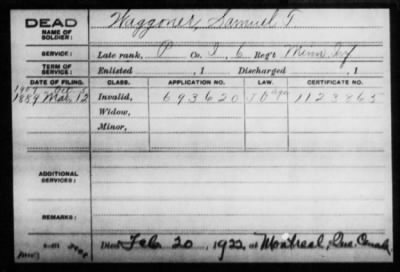 DEAD
NAME OF SOLDIER:
Waggoner, Samuel T.
SERVICE:
Late rank, P Co. I, 6 Reg't Minn. Inf
TERM OF SERVICE:
Enlisted , 1 Discharged , 1
DATE OF FILING. CLASS. APPLICATION NO. LAW. CERTIFICATE NO.
1889 Mar. 12 Invalid, 693620 1123865
Widow,
Minor,
ADDITIONAL SERVICES:
REMARKS:
Died Feb. 20, 1922, at Montreal, Que. Canada